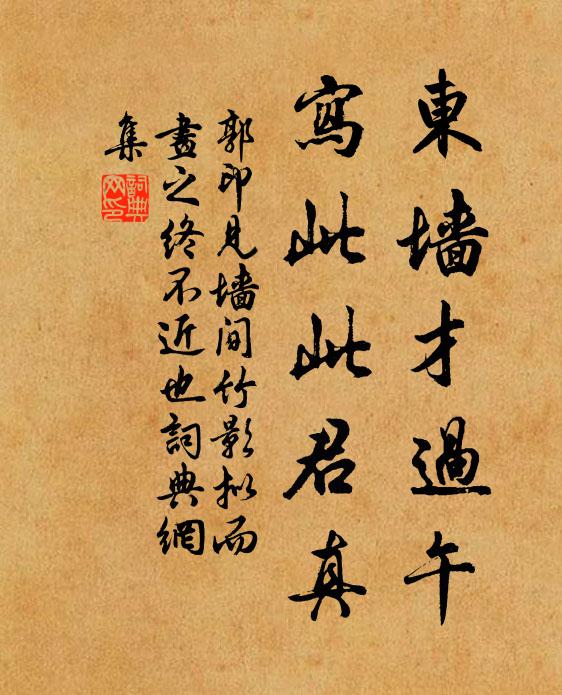 東墙才過午
寫此此君真
郭印見墙間竹影拟而
畫之终不近也詞典網
集
詞典网印